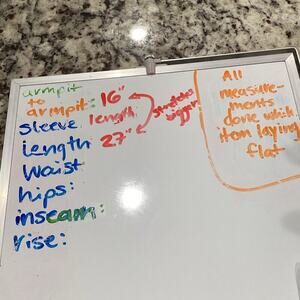 armpit
to
armpit: 16"
sleeve length:
27"
Length
Waist
hips:
inseam:
rise:
stretches
bigger
All
measure-
ments
done with
item laying
flat